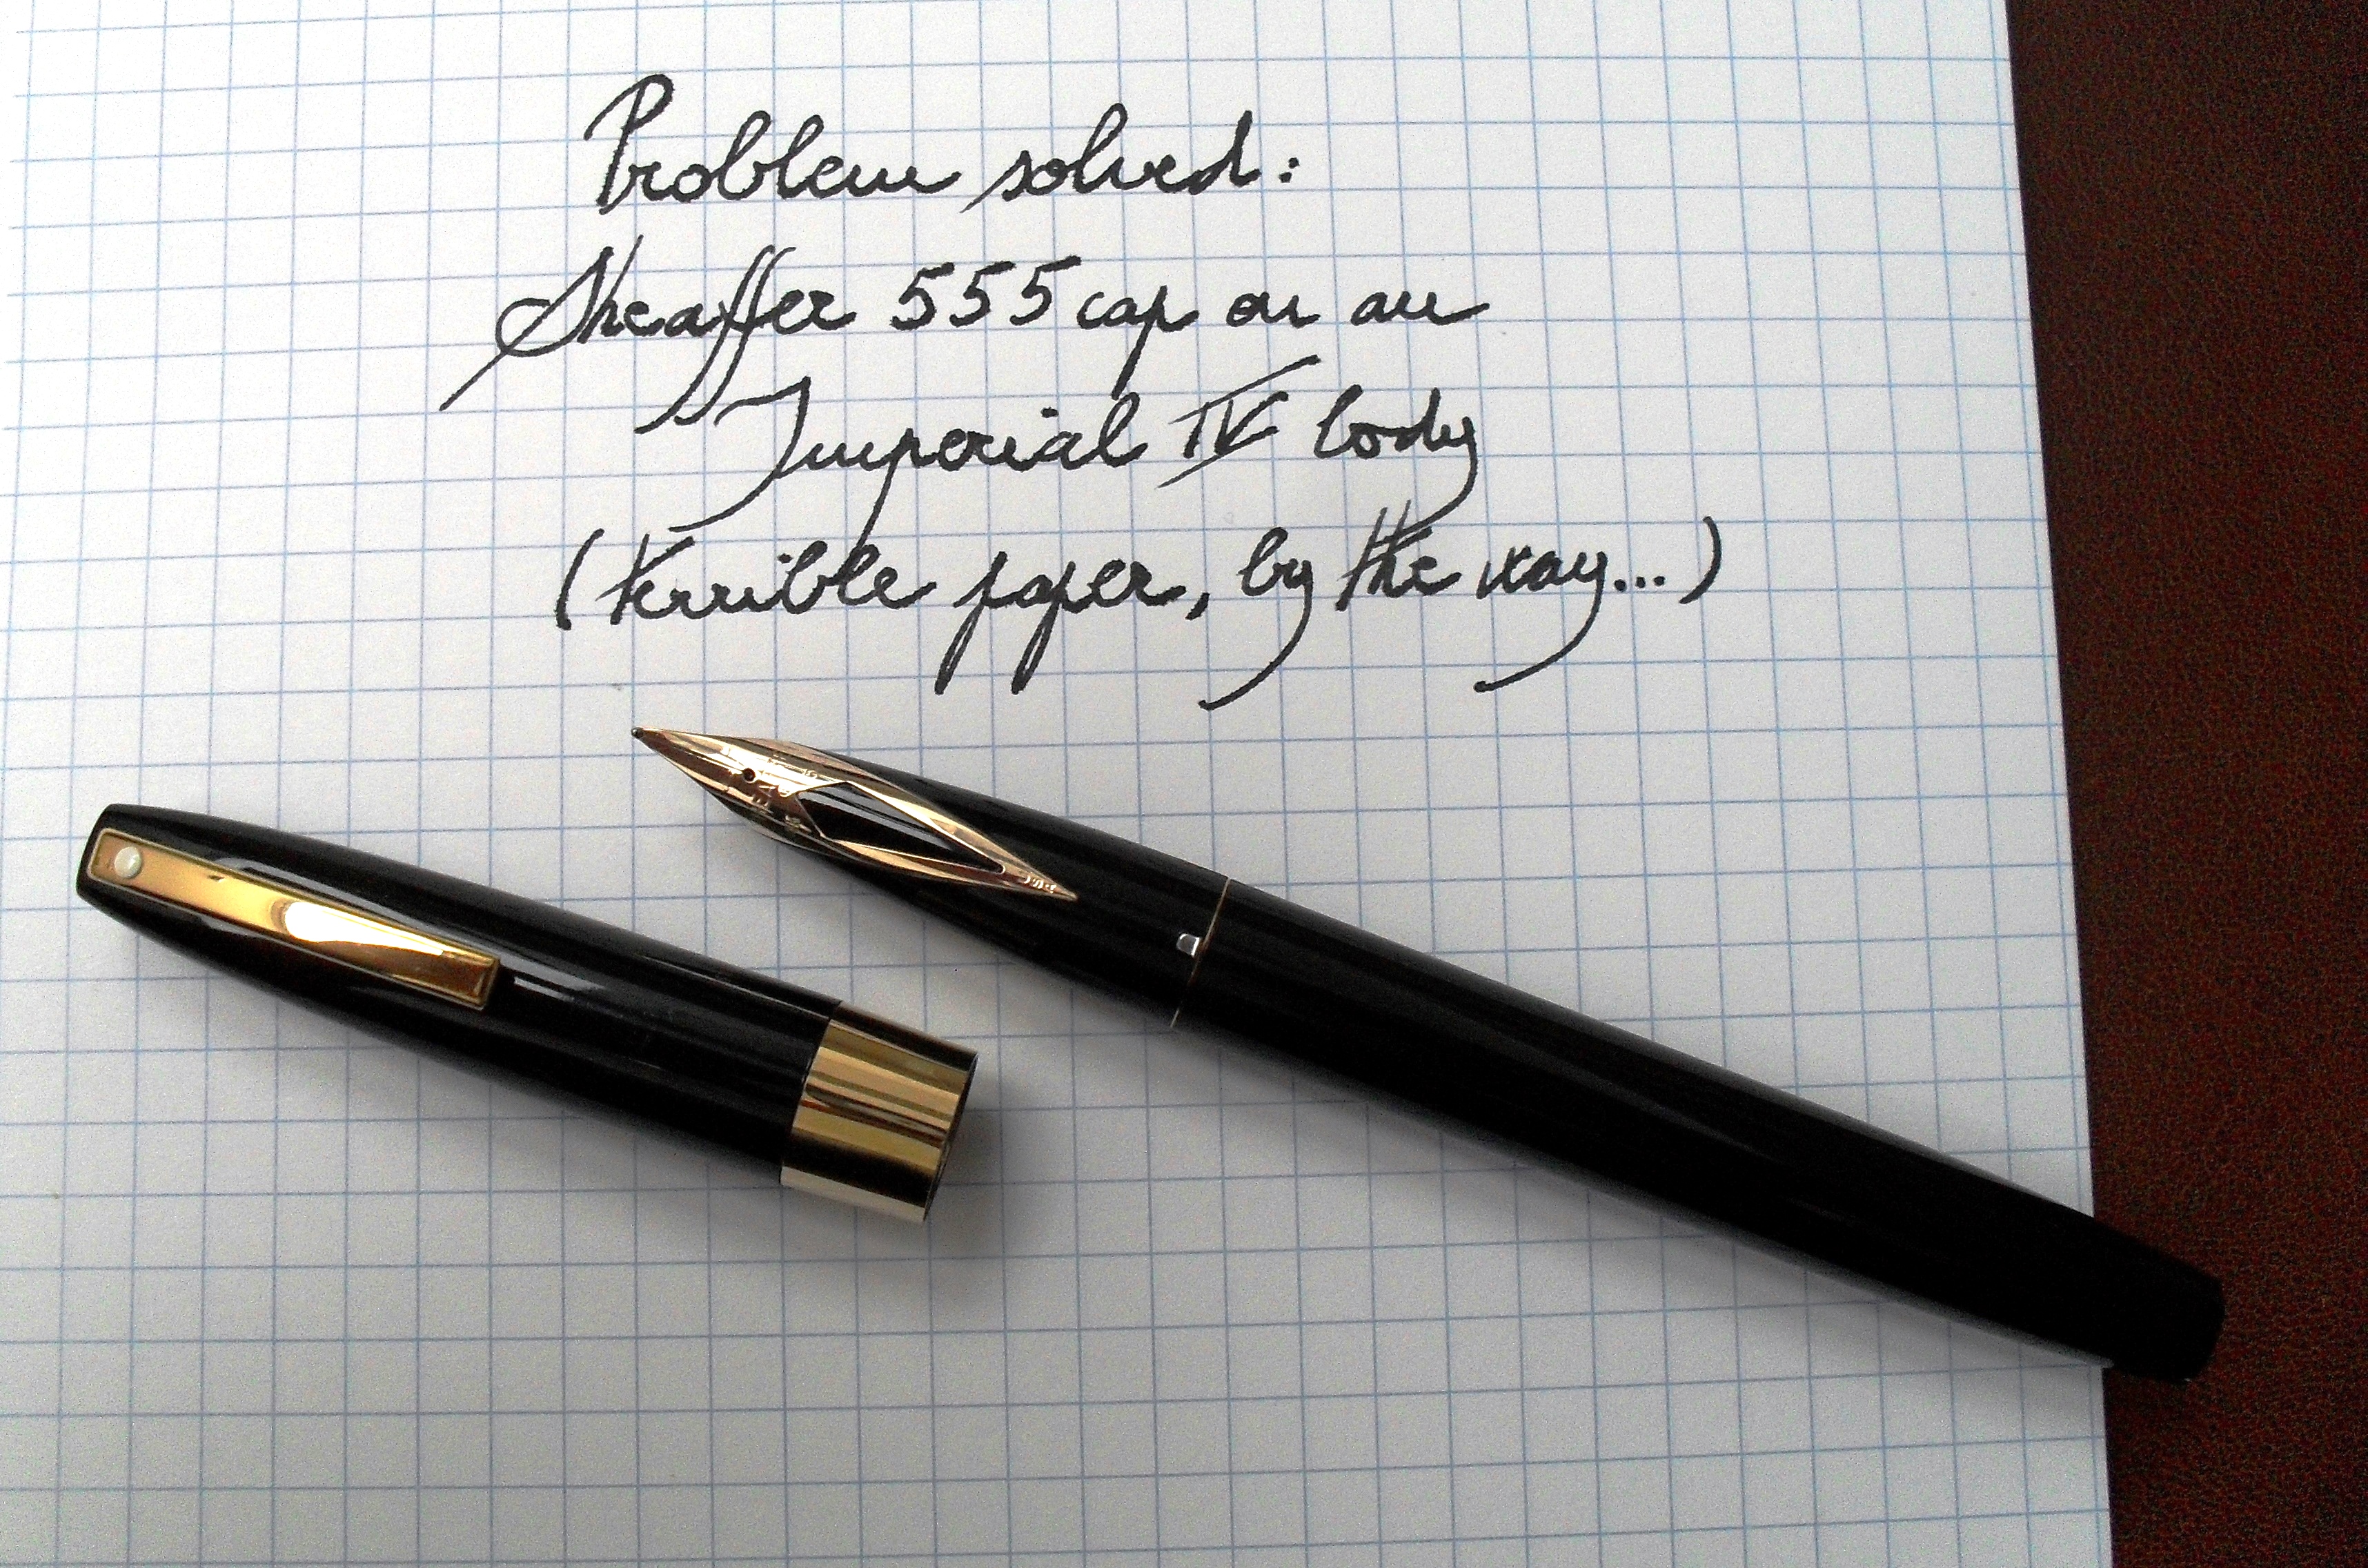 Problem solved:
Sheaffer 555 cap on an
Imperial IV body
(terrible paper, by the way...)